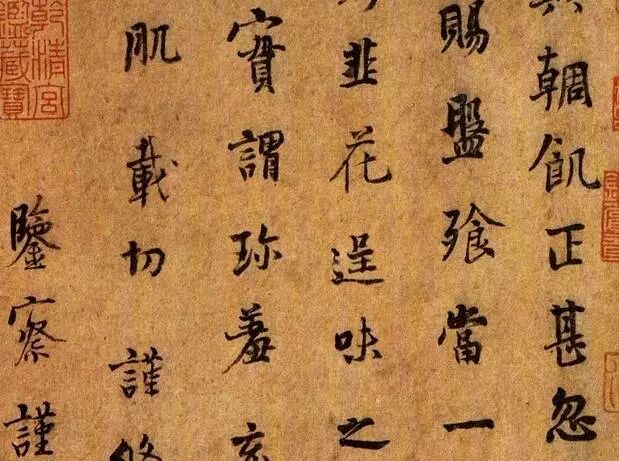 輖飢正甚忽
賜盤飱當一
韭花逞味之
實謂珎羞充
肌載切謹修
鑒察謹
乾清宮
鑑藏寶